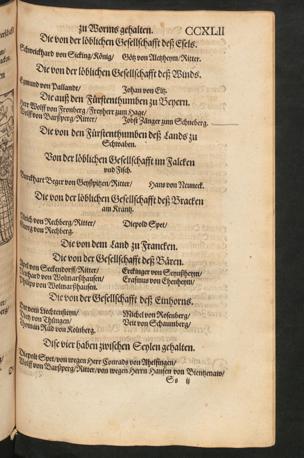 zu Worms gehalten. CCXLII
Die von der löblichen Gesellschafft deß Esels.
Schweickhard von Sicking/König/ Götz von Aletzheym/Ritter.
Die von der löblichen Gesellschafft deß Winds.
Egmund von Pallande/ Johan von Eltz.
Die auß den Fürstenthumben zu Beyern.
Herr Wolff von Fronberg/Freyherr zum Hage/
Wolff von Barßperg/Ritter/ Jobst Zänger zum Schneberg.
Die von den Fürstenthumben deß Lands zu
Schwaben.
Von der löblichen Gesellschafft im Falcken
und Fisch.
Burckhart Beger von Geyßpitzen/Ritter/ Hans von Neuneck.
Die von der löblichen Gesellschafft deß Bracken
am Kräntz.
Ulrich von Rechberg/Ritter/ Diepold Spet/
Georg von Rechberg.
Die von dem Land zu Francken.
Die von der Gesellschafft deß Bären.
von Seckendorff/Ritter/ Erckinger von
von Wolmarßhausen/ Erasmus von Ehenheym/
Philips von Wolmarßhausen.
Die von der Gesellschafft deß Einhorns.
von Liechtensteyn/ Michel von Rosenberg/
Dietz von Thüngen/ Veit von Schaumberg/
Herman Rüd von Kolnberg.
Dise vier haben zwischen Seylen gehalten.
Diepolt Spet/von wegen Herr Conrads von Ahelfingen/
Wolff von Barßperg/Ritter/von wegen Herrn Hansen von Bientzenaw/
Ss ij